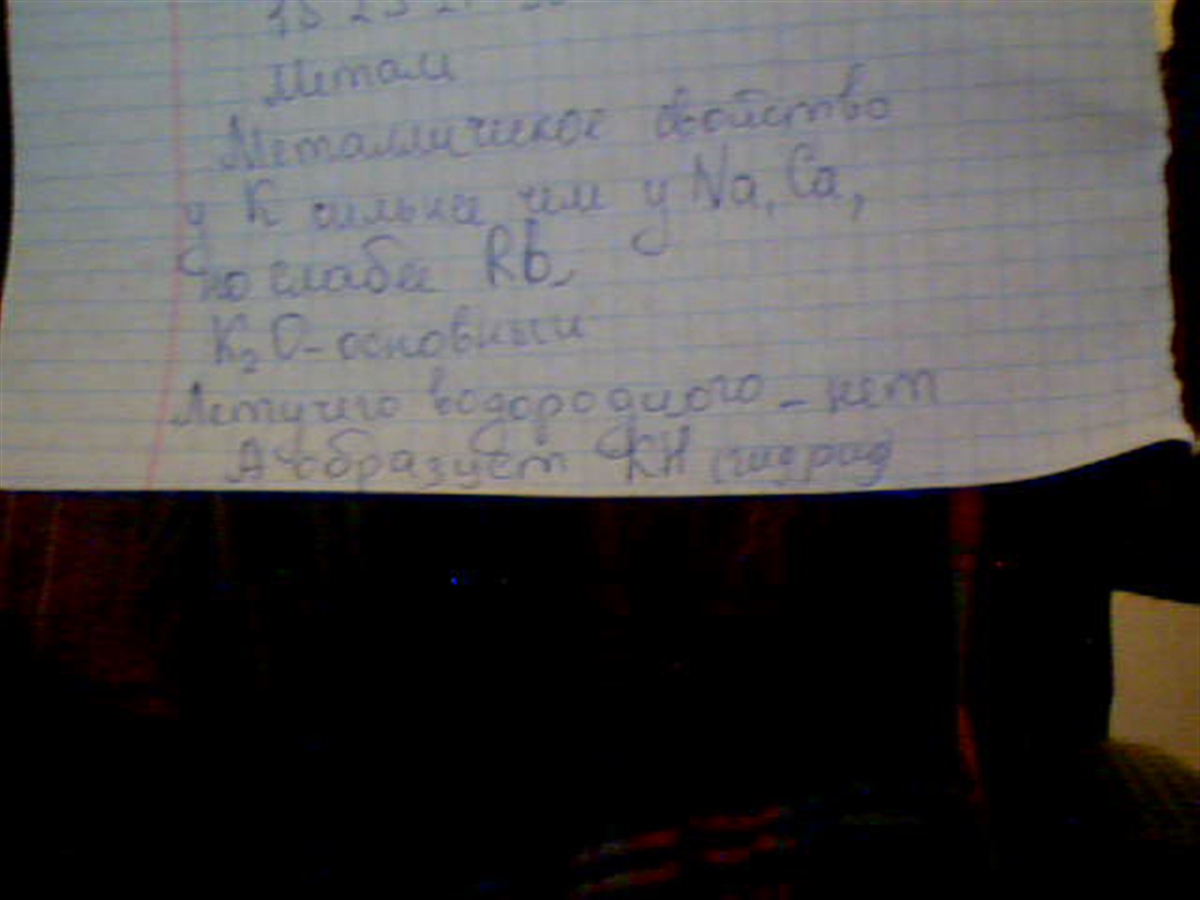 Метал
Металлическое свойство
у К сильне чем у Na, Ca,
но слабее Rb.
K₂O - основный
Летучего водородного - нет
А образует KH (гидрид